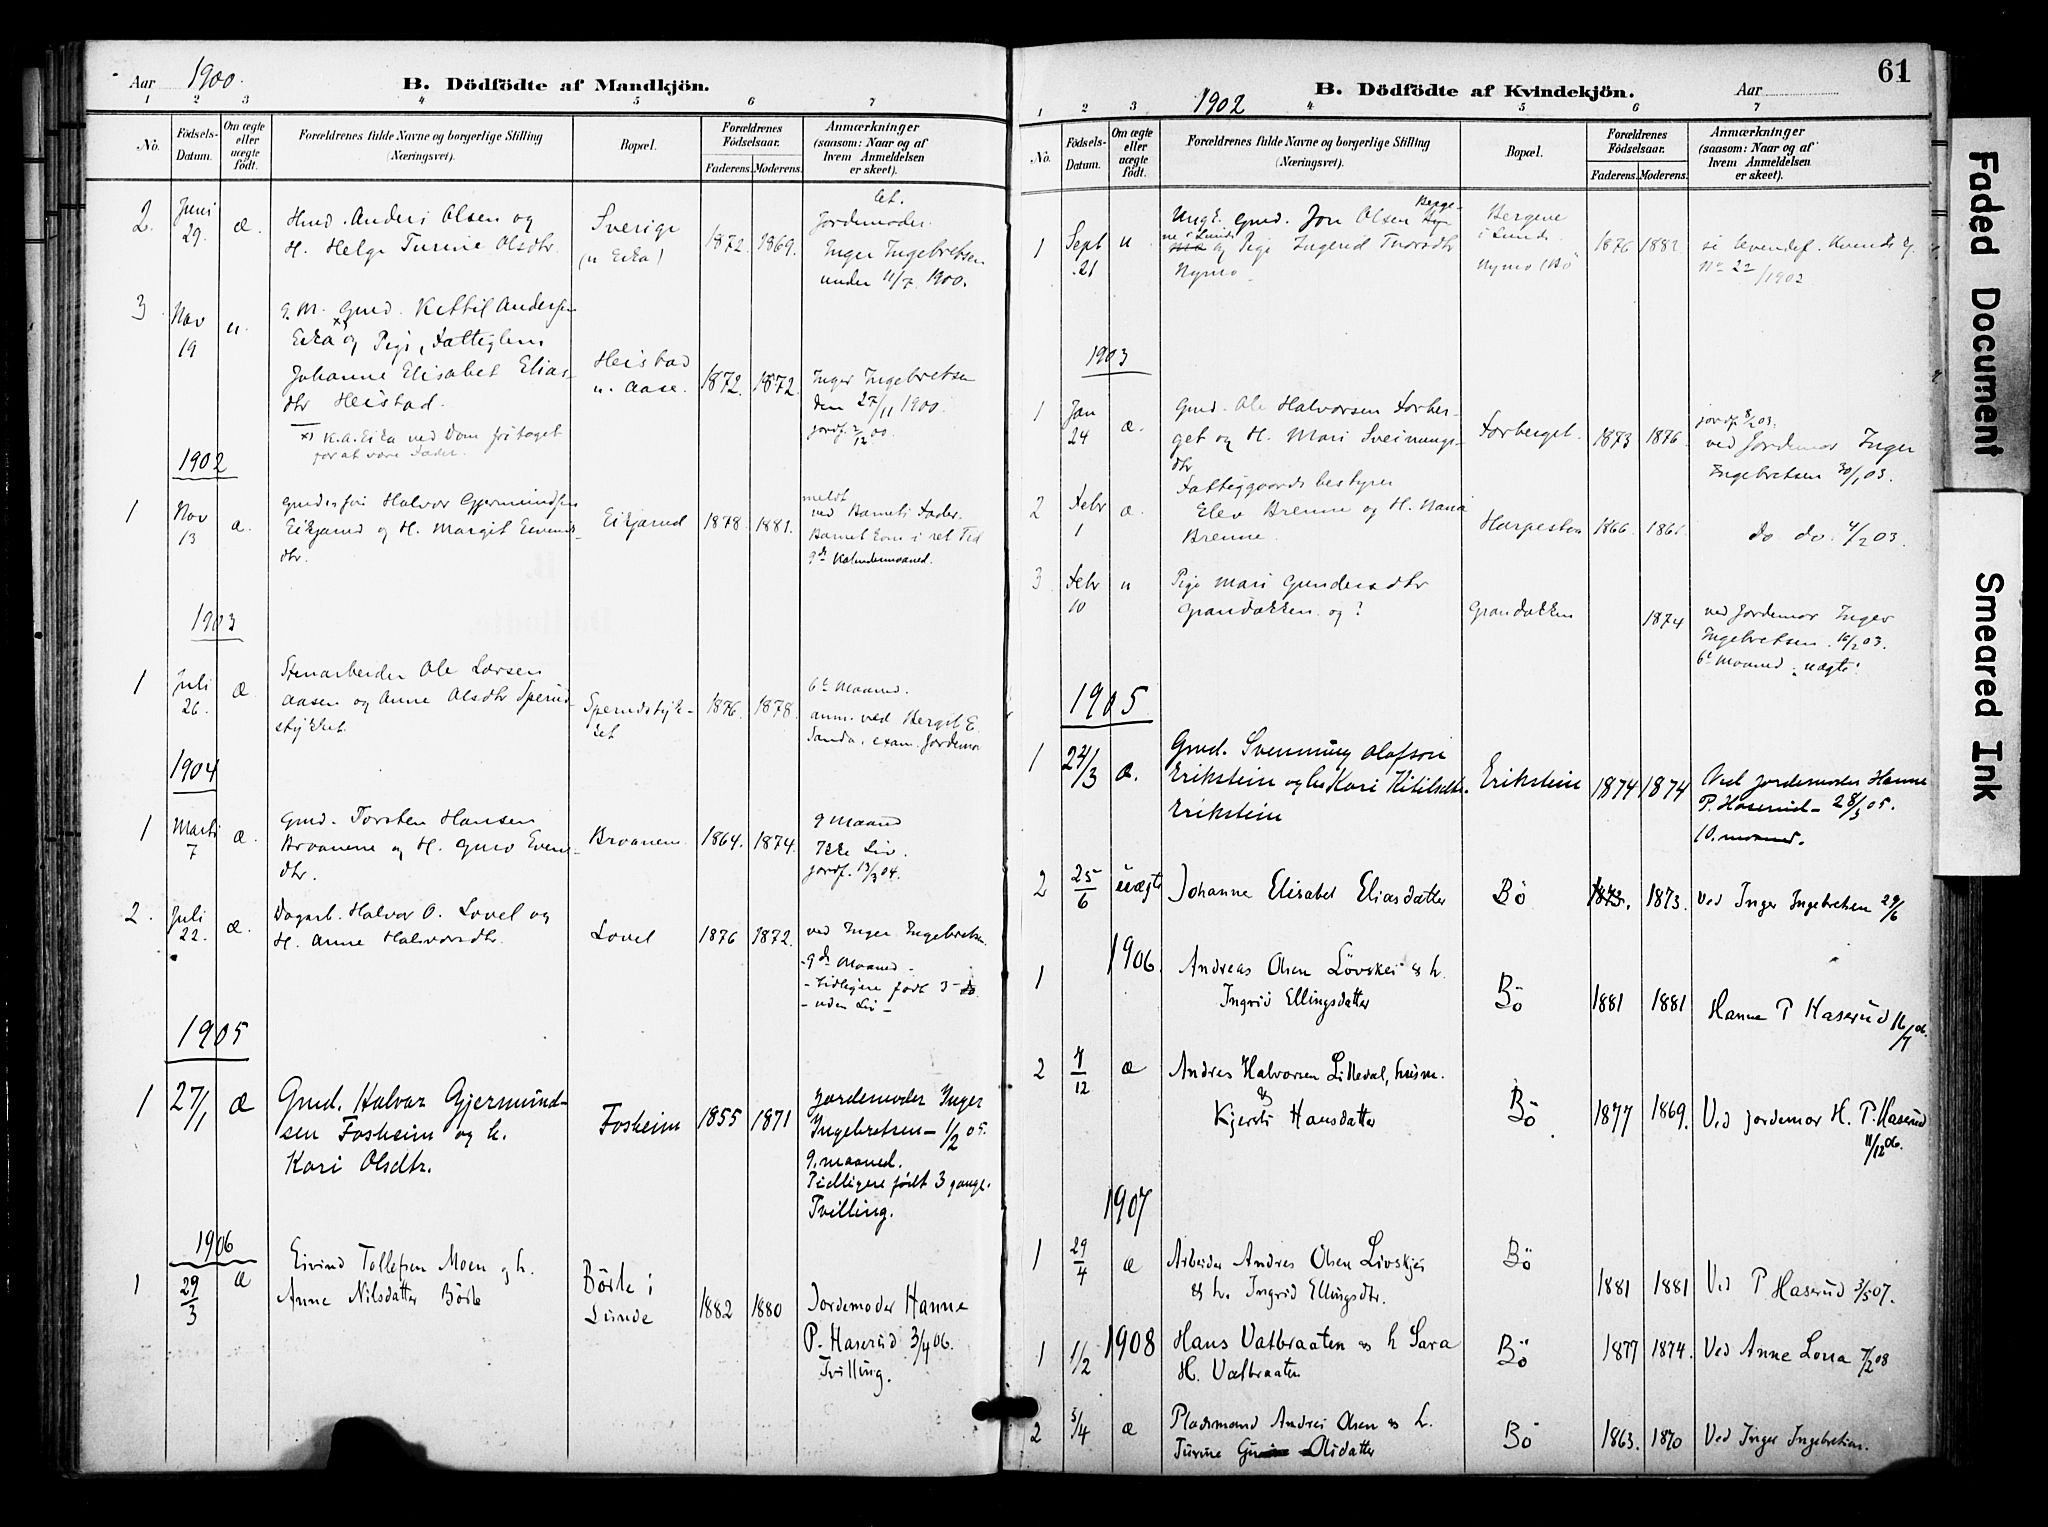 Aar 1900.
B. Dödfödte af Mandkjön.
1 2 3 4 5 6 7
No.
Födsels-Datum.
Om ægte eller uægte födt.
Forældrenes fulde Navne og borgerlige Stilling
(Næringsvei).
Bopæl.
Forældrenes Födselsaar.
Faderens. Moderens.
Anmærkninger
(saasom: Naar og af
hvem Anmeldelsen
er skeet).
2 Juni 29. æ.
Anders Olsen og
H. Helge Turine Olsdtr.
Sverige
(u Eika)
1872. 1869.
Jordemoder
Inger Ingebretsen
under 11/7 1900.
3 Nov 19 u.
g. M. Gmd. Kittil Andersen
Eika og Pige, Fattiglem
Johanne Elisabet Elias-
dtr Heistad.
x) K.A. Eika ved Dom fritaget
for at være Fader.
Heistad
u. Aase.
1872. 1872.
Inger Ingebretsen
den 27/11 1900.
jordf. 2/12 00.
1902
1 Nov 13 æ.
Halvor Gjermundsen
Eikjarud og H. Margit
dtr.
Eikjarud
1878. 1881.
meldt
ved Barnets Fader.
Barnet kom i ret Tid
9de Kalendermaaned.
1903
1 Juli 26. æ.
Stenarbeider Ole Larsen
Aasen og Anne Olsdtr Sperud-
stykket.
1876. 1878.
6te Maaned.
anm. ved Bergit E.
Sanda, exam. Jordemor
1904
1 Marts 7 æ.
Gmd. Torsten Hansen
Broanene og H. Guro
dtr.
Broanene
1864. 1874.
9 Maaned
Ikke Liv.
jordf. 13/3 04.
2. Juli 22. æ.
Dagarb. Halvor O. Lovel og
H. Anne Halvorsdtr.
Lovel
1876 1872.
ved Inger Ingebretsen.
9de Maaned
- tidligere født 3 -
- uden Liv -
1905
1 27/1 æ
Gmd. Halvor Gjermund-
sen Fosheim og h.
Kari Olsdtr.
Fosheim
1855 1871
jordemoder Inger
Ingebretsen - 1/2 05.
9. maaned.
Tidligere født 3 gange.
Tvilling.
1906
1 29/3 æ
Eivind Tollefsen Moen og h.
Anne Nilsdatter Börte
Börte i
Lunde
1882 1880
Jordemoder Hanne
P. Haserud 3/4 06.
Tvilling.
61
B. Dödfödte af Kvindekjön.
Aar
1902
1 2 3 4 5 6 7
No.
Födsels-Datum.
Om ægte eller uægte födt.
Forældrenes fulde Navne og borgerlige Stilling
(Næringsvei).
Bopæl.
Forældrenes Födselsaar.
Faderens. Moderens.
Anmærkninger
(saasom: Naar og af
hvem Anmeldelsen
er skeet).
1 Sept 21 u
Ungk. Gmd. Jon Olsen Berge-
ne i Lunde og Pige Ingerid Thorsdtr
Nymo
Bergene
i Lunde
Nymo i Bö
1876 1882
No 22/1902
1903
1 Jan 24 æ.
Gmd. Ole Halvorsen Forber-
get og H. Mari Sveinungs-
dtr
Forberget.
1873 1876.
jordf. 8/2 03.
ved Jordemor Inger
Ingebretsen 30/1 03.
2 Febr 1 æ.
Fattiggaardsbestyrer
Elev Brenne og H. Maria
Brenne.
1866
Do do. 4/2 03.
3 Febr 10 u
Pige Mari Gundersdtr
Grandokken og ?
Grandokken
1874
ved Jordemor Inger
Ingebretsen 16/2 03.
6te Maaned, uægte.
1905
1 22/3 æ.
Gmd. Svenning Olafsen
Erikstein og h. Kari Kittilsdtr.
Erikstein
Erikstein
1874 1874
Ved jordemoder Hanne
P. Haserud - 28/3 05.
10. maaned.
2 25/6 uægte
Johanne Elisabet Eliasdatter
Bö
1873. 1873.
Ved Inger Ingebretsen 29/6
1906.
1
Andreas Olsen Lövskei & h.
Ingrid Ellingsdatter
Bö
1881 1881
Hanne P Haserud 16/7 06.
2 4/12 æ
Andres Halvorsen Lilledal, husm.
&
Kjersti Hansdatter
Bö
1877 1869.
Ved jordemor H. P. Haserud
11/12 06.
1907
1 29/4 æ
Arbeider Andres Olsen Livskjei
& h. Ingrid Ellingsdtr.
Bö
1881 1881
Ved P. Haserud 3/5 07.
1908
1 1/2
Hans Vatbraaten & h Sara
H. Vatbraaten
Bö
1877 1874.
Ved Anne Lona 7/2 08
2 5/4 æ
Pladsmand Andres Olsen & h.
Turine Olsdatter
Bö
1863. 1870
Ved Inger Ingebretsen.
Faded Document
Smeared Ink